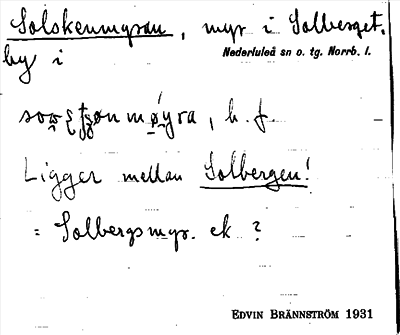 Solskenmyran, myr i Solberget.
by i Nederluleå sn o. tg. Norrb. l.
b. f.
Ligger mellan Solbergen!
= Solbergsmyr. ek ?
EDVIN BRÄNNSTRÖM 1931